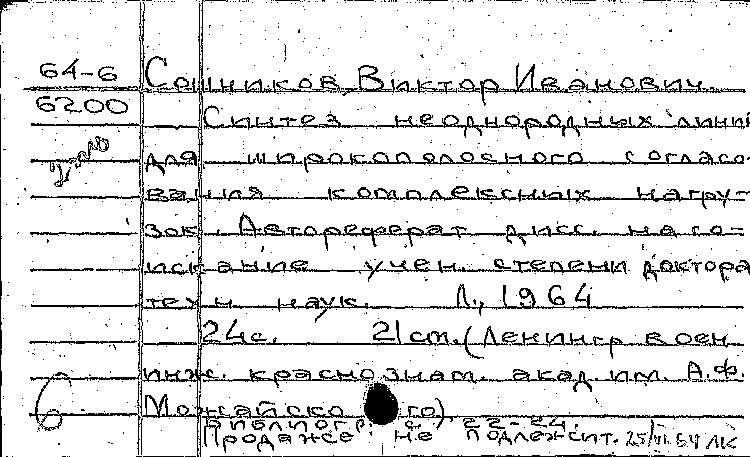 64-6 Сошников, Виктор Иванович.
6200
Синтез неоднородных линий
для широкополосного согласо-
вания комплексных нагру-
зок. Автореферат дисс. на со-
искание учен. степени доктора
техн. наук. Л., 1964
24с. 21 см. (Ленингр. воен.
инж. краснознам. акад. им. А.Ф.
Можайского)
Библиогр.: с. 22-24.
Продаже не подлежит. 25/VI 64 ЛК
6